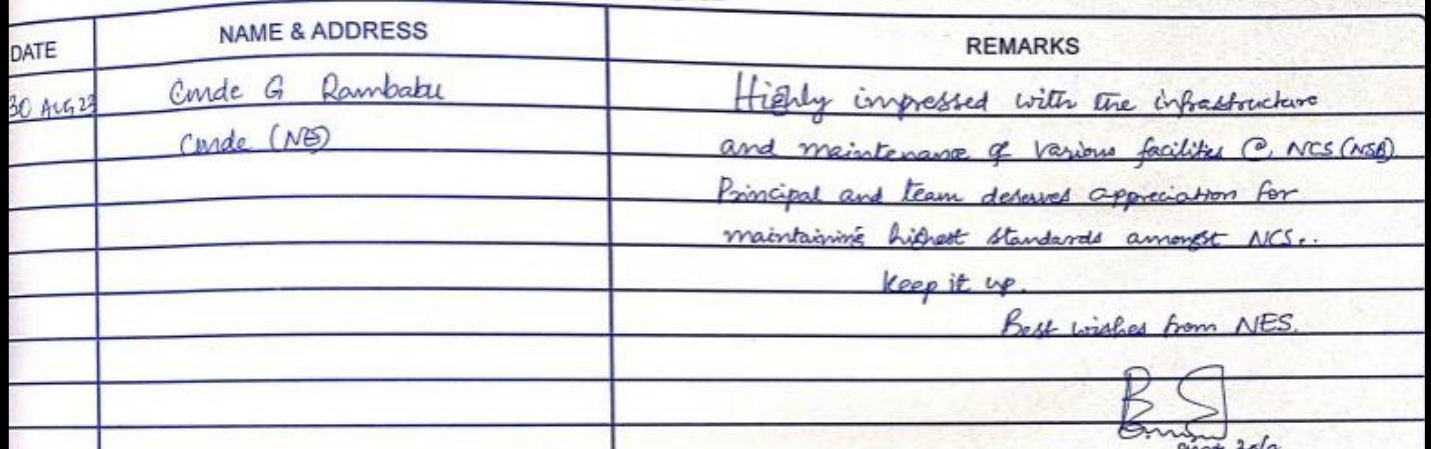 DATE NAME & ADDRESS REMARKS
30 AUG 23 Cmde G Rambabu Highly impressed with the infrastructure
Cmde (NE) and maintenance of various facilities @ NCS (NSB)
Principal and team deserves appreciation for
maintaining highest standards amongst NCS.
Keep it up.
Best wishes from NES.